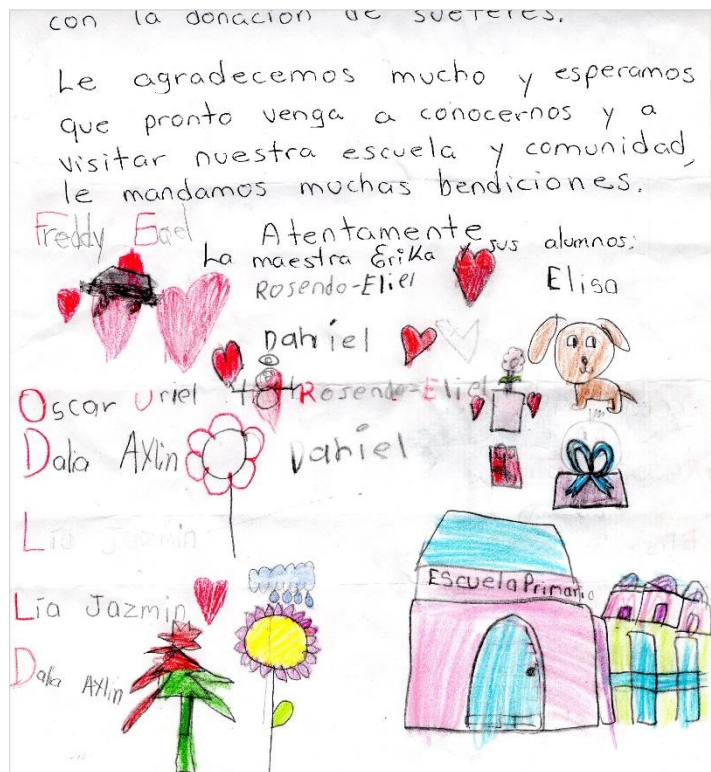 con la donación de suéteres.
Le agradecemos mucho y esperamos
que pronto venga a conocernos y a
visitar nuestra escuela y comunidad,
le mandamos muchas bendiciones.
Atentamente
La maestra Erika y sus alumnos:
Freddy Gael
Rosendo-Eliel
Elisa
Daniel
Oscar Uriel
Rosendo-Eliel
Dalia Axlin
Daniel
Lía Jazmin
Lía Jazmin
Dalia Axlin
Escuela Primaria